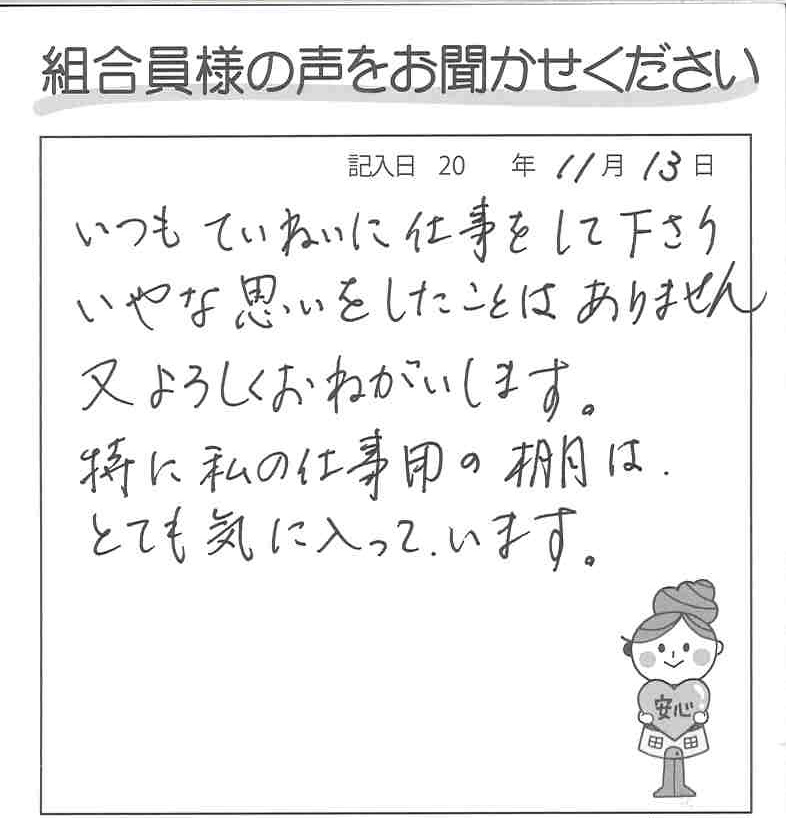 組合員様の声をお聞かせください
記入日 20 年 11月 13日
いつも ていねいに 仕事を して 下さり
いやな 思いをしたことは ありません
又 よろしくおねがいします。
特に 私の仕事用の 棚は.
とても 気に入って.います。
安心